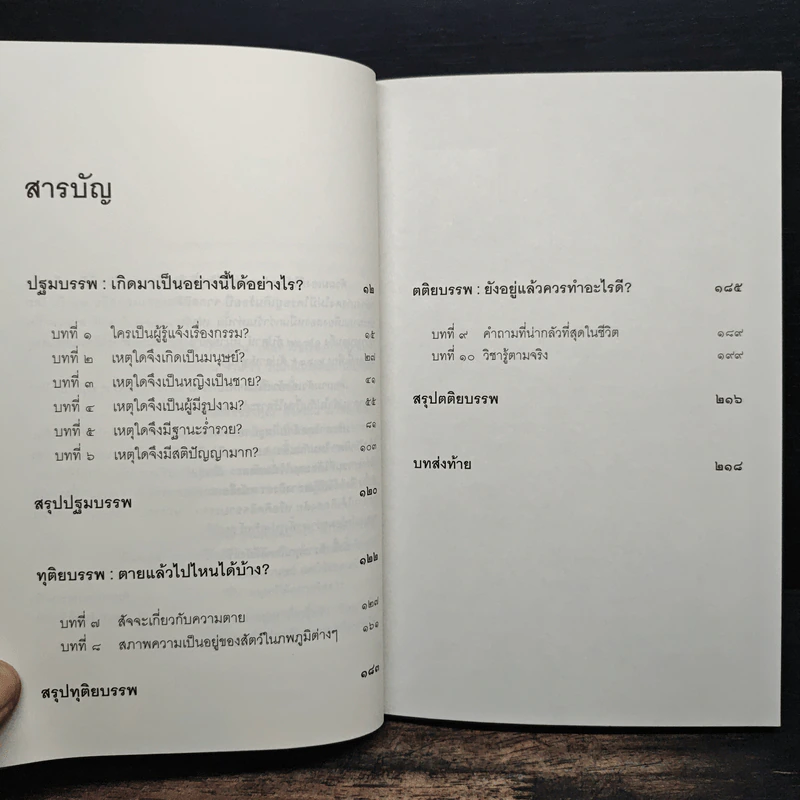 สารบัญ
ปฐมบรรพ : เกิดมาเป็นอย่างนี้ได้อย่างไร? ๑๒
บทที่ ๑ ใครเป็นผู้รู้แจ้งเรื่องกรรม? ๑๕
บทที่ ๒ เหตุใดจึงเกิดเป็นมนุษย์? ๒๘
บทที่ ๓ เหตุใดจึงเป็นหญิงเป็นชาย? ๔๑
บทที่ ๔ เหตุใดจึงเป็นผู้มีรูปงาม? ๕๕
บทที่ ๕ เหตุใดจึงมีฐานะร่ำรวย? ๘๑
บทที่ ๖ เหตุใดจึงมีสติปัญญามาก? ๑๐๓
สรุปปฐมบรรพ ๑๒๐
ทุติยบรรพ : ตายแล้วไปไหนได้บ้าง? ๑๒๒
บทที่ ๗ สัจจะเกี่ยวกับความตาย ๑๒๗
บทที่ ๘ สภาพความเป็นอยู่ของสัตว์ในภพภูมิต่างๆ ๑๖๑
สรุปทุติยบรรพ ๑๘๓
ตติยบรรพ : ยังอยู่แล้วควรทำอะไรดี? ๑๘๕
บทที่ ๙ คำถามที่น่ากลัวที่สุดในชีวิต ๑๘๙
บทที่ ๑๐ วิชารู้ตามจริง ๑๙๙
สรุปตติยบรรพ ๒๑๖
บทส่งท้าย ๒๑๘